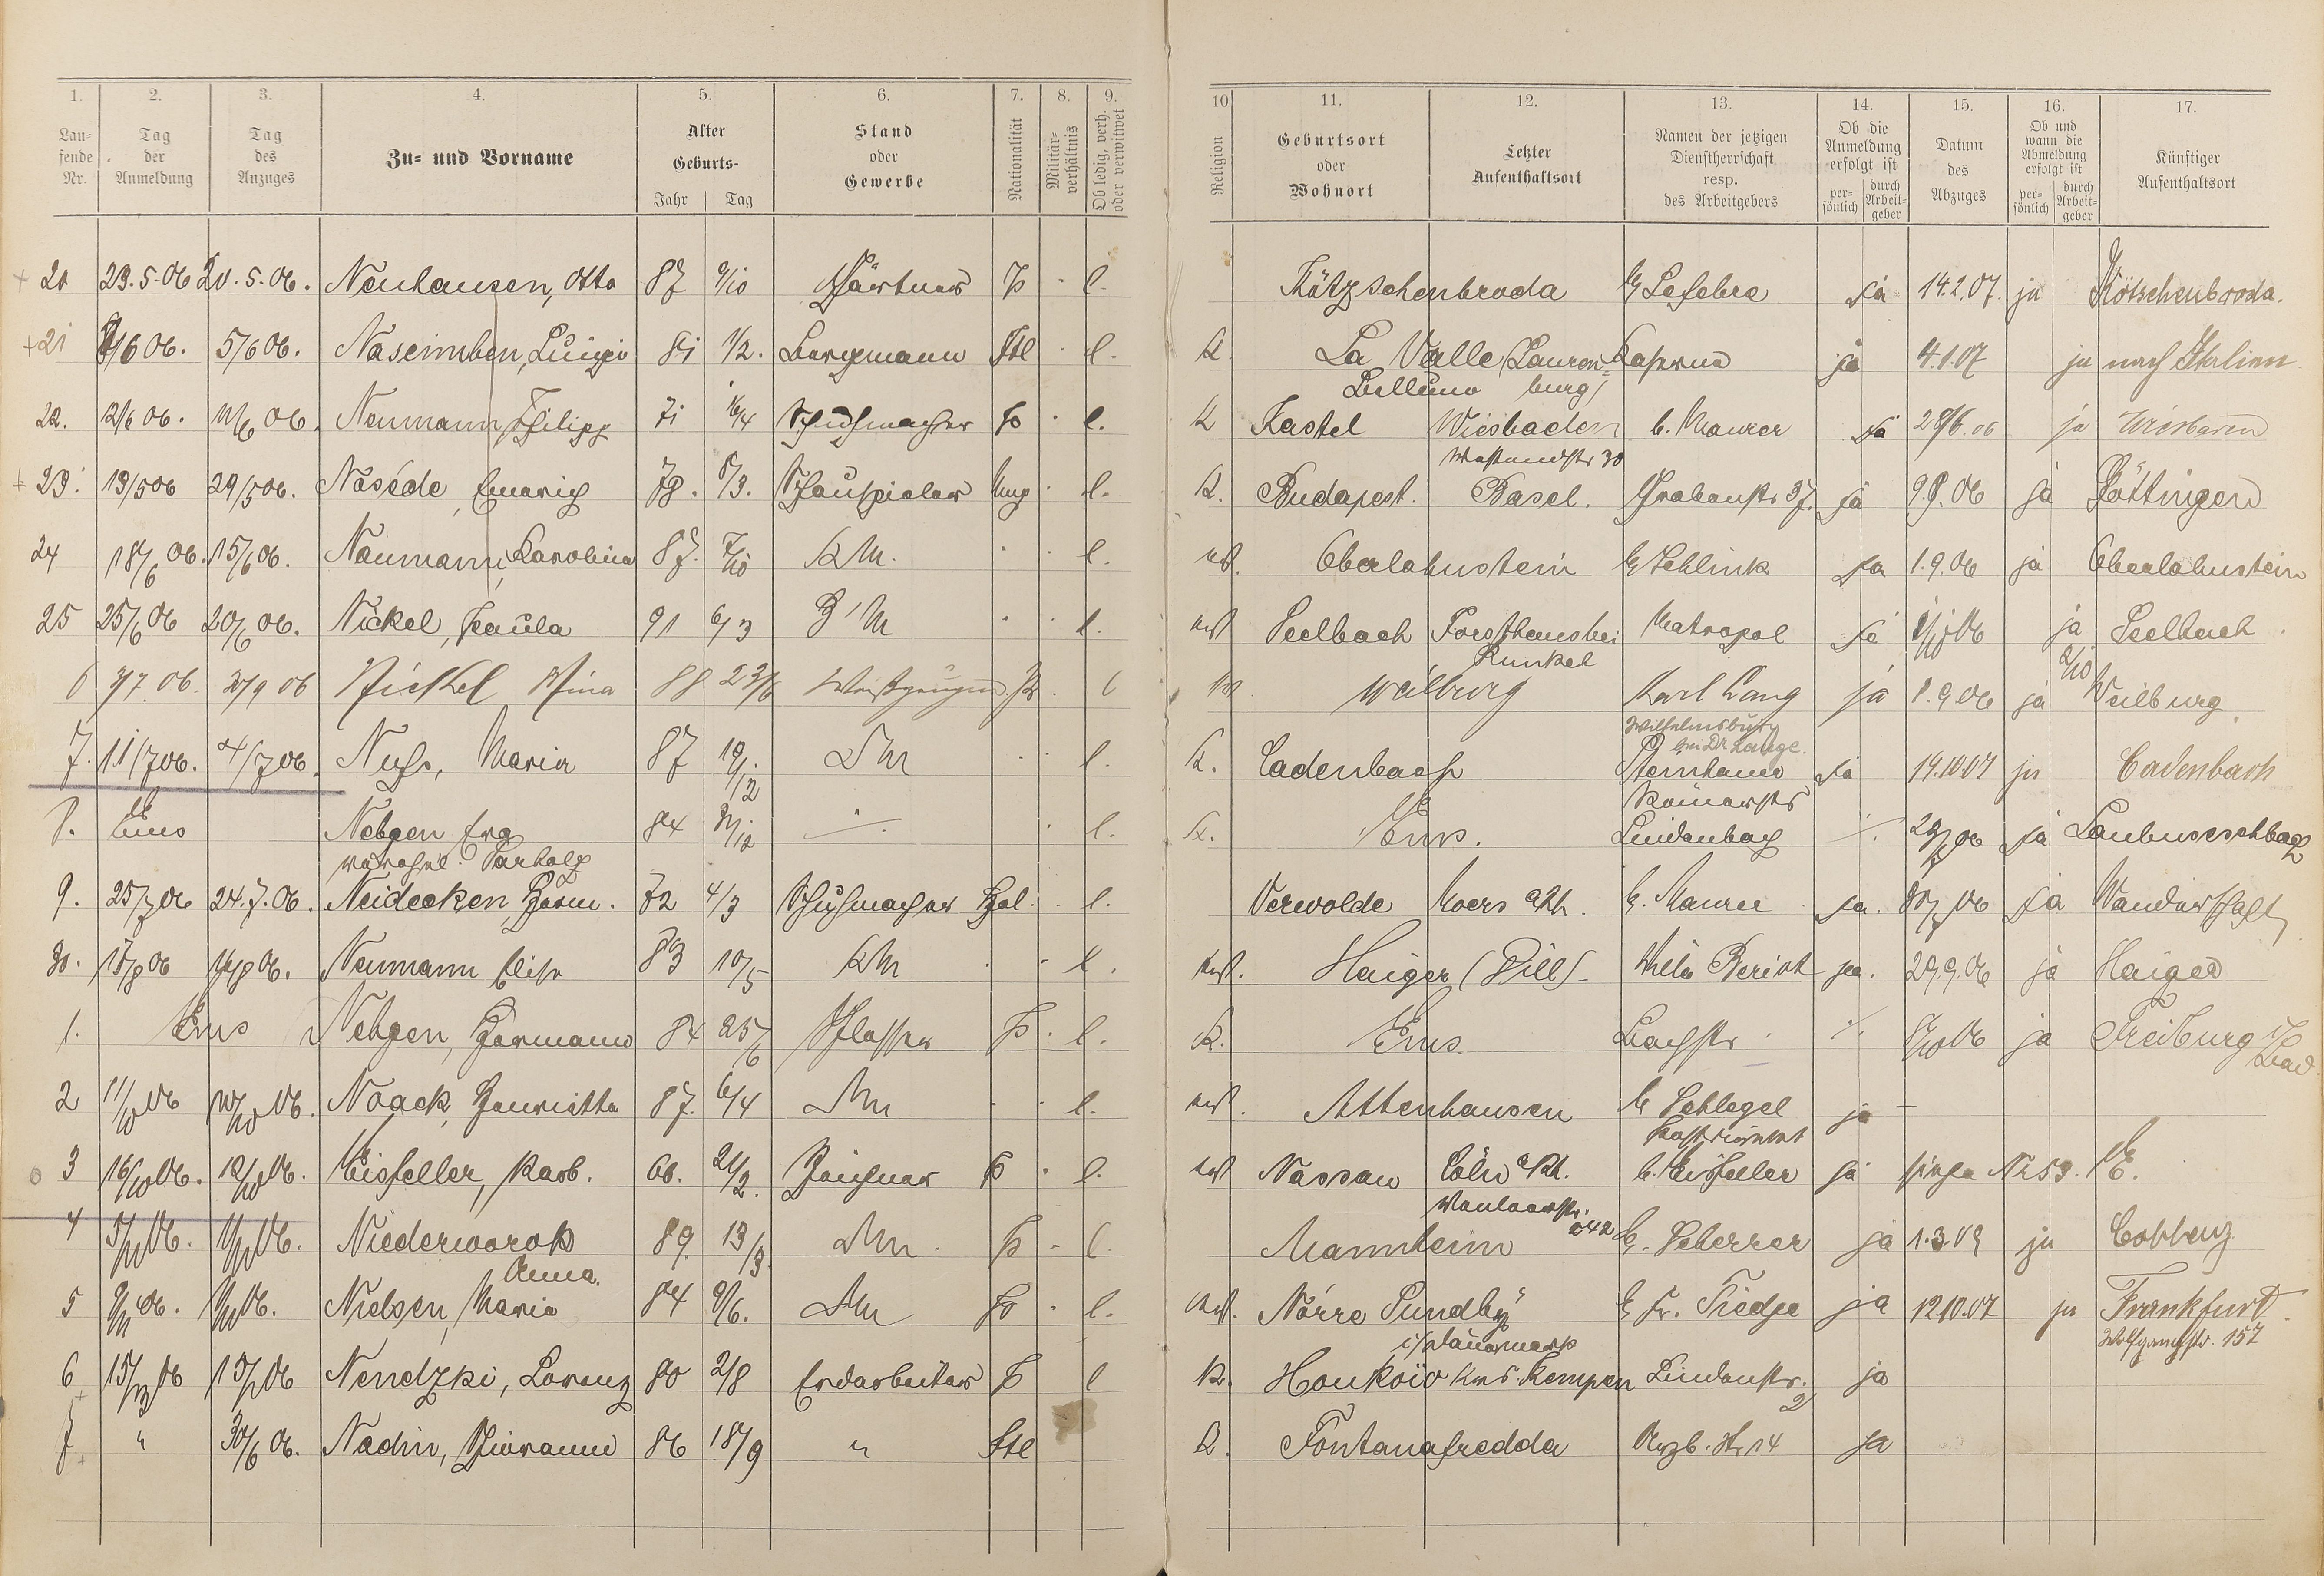 1. 2. 3. 4. 5. 6. 7. 8. 9. 10 11. 12. 13. 14. 15. 16. 17.
Lau-
fende
Nr.
Tag
der
Anmeldung
Tag
des
Anzuges
Zu- und Vorname
Alter
Geburts-
Jahr Tag
Stand
oder
Gewerbe
Nationalität
Militär-
verhältnis
Ob ledig, verh.
oder verwitwet
Religion
Geburtsort
oder
Wohnort
Letzter
Aufenthaltsort
Namen der jetzigen
Dienstherrschaft
resp.
des Arbeitgebers
Ob die
Anmeldung
erfolgt ist
per-
sönlich
durch
Arbeit-
geber
Datum
des
Abzuges
Ob und
wann die
Abmeldung
erfolgt ist
per-
sönlich
durch
Arbeit-
geber
Künftiger
Aufenthaltsort
20 23.5.06 20.5.06. Neuhausen, Otto 87 9/10 Gärtner P l. Kötzschenbroda Lefebre ja 14.2.07. ja Kötschenbroda.
21 /6 06. 5/6 06. Naseimben, Luigi 81 1/2. Bergmann Itl l. K. La Valle (Lauren- Kaserne ja 4.1.07 ja nach Italien
Belluno burg)
22. 12/6 06. 11/6 06. Neumann, Philipp 71 16/4 Schuhmacher P l. K Kastel Wiesbaden b. Maurer ja 28/6.06 ja Wiesbaden
Westendstr 30
23. 13/5 06 29/5 06. Násséde, Emerich 78. 8/3. Schauspieler Ung l. K. Budapest. Basel. Grabenstr 37. ja 9.8.06 ja Göttingen
24 18/6 06. 15/6 06. Naumann, Karolina 87. 7/10 KM. l. ev. Oberlahnstein Schlink ja 1.9.06 ja Oberlahnstein
25 25/6 06 20/6 06. Nickel, Paula 91 6/3 Z'M l. ev Seelbach Forsthaus bei Metropol ja 1/10 06 ja Seelbach.
Runkel 2/10
6 3/7 06. 30/9 06 Nickel Mina 88 23/6 P. l Weilburg Karl Lang ja 1.9.06 ja Weilburg
Wilhelmsburg
bei Dr Lange
7. 11/7 06. 4/7 06. Nuss, Maria 87 19/12 DM l. K. Cadenbach ja 14.10 07 ja Cadenbach
Römerstr
8. Ems Nebgen Eva 84 31/12 ./. l. K. Ems. Lindenbach ./. 06 ja Laubuseschbach
9. 25/7 06 24.7.06. Neidecken Herm. 72 4/3 Schuhmacher Hol. l. Verwolde Moers a/Rh. b. Maurer ja. 30/7 06 ja Wanderschaft
30. 17/8 06 14/8 06. Neumann Elise 83 10/5 KM l. ev. Haiger (Dill) Villa Beriot ja. 29.9.06 ja Haiger
1. Ems Nebgen, Hermann 84 25/6 Schlosser P. l. K. Ems. Bachstr ./. 8/10 06 ja Freiburg i/
Bad.
2 11/10 06 10/10 06. Noack, Henriette 87. 6/4 DM l. ev. Attenhausen b Schlegel ja –
3 16/10 06. 12/10 06. Eisfeller, Karl. 66. 21/2. Zeichner P l. ev Nassau Cöln a/Rh. b. Eisfeller ja siehe No 53. E.
Venloerstr.
242
4 5/11 06. 1/11 06. Niederworok 89. 13/3. DM. P l. Mannheim b. Scherrer ja 1.3.09 ja Coblenz
Anna.
5 9/11 06. 1/11 06. Nielsen, Maria 84 9/6. DM P l. ev. Nörre Sundby Fr. Tiedje ja 12.10.07 ja Frankfurt.
i/Dänemark Wolfgangstr. 157
6 15/ 06 15/ 06 Nendzki, Lorenz 80 2/8 Erdarbeiter P l K. Honkoio Krs. Kempen Lindenstr. ja
2
7 " 30/6 06. Nadin, Giovanni 86 18/9 " Itl K. Fontanafredda Arzb. Str 14 ja